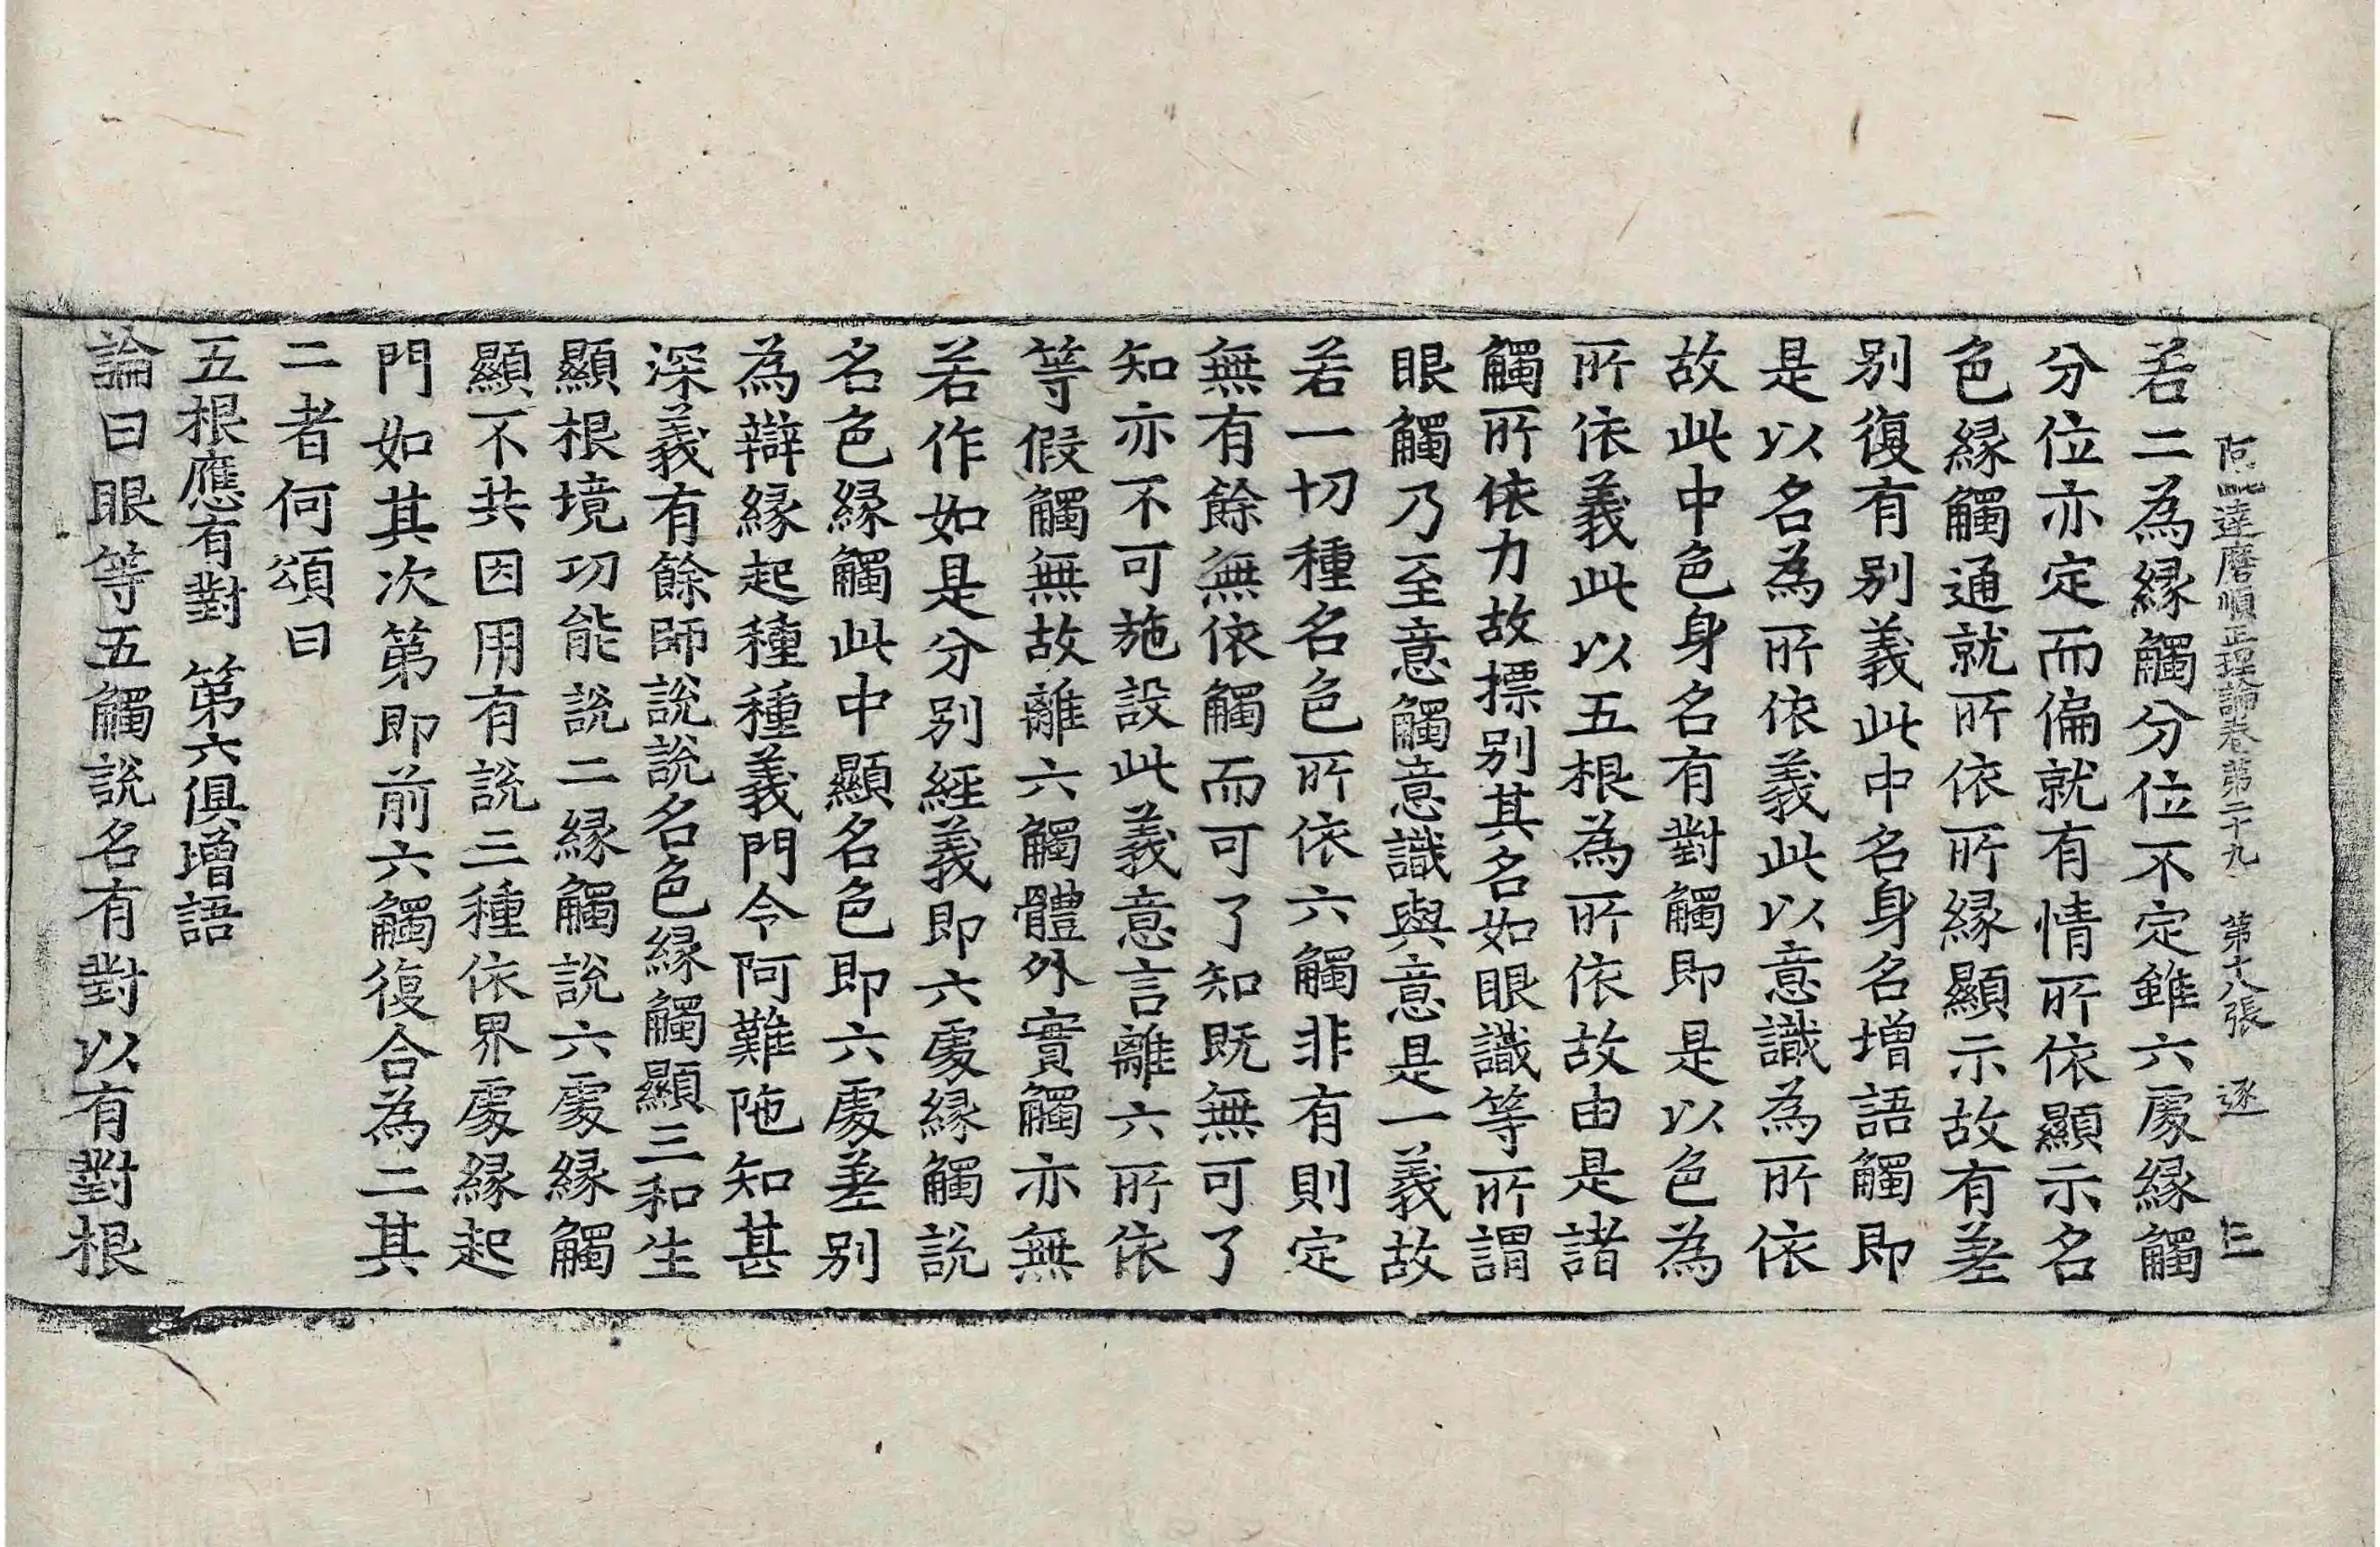 阿毗達磨順正理論卷第二十九 第十八張 逐
若二為緣觸分位不定雖六處緣觸
分位亦定而偏就有情所依顯示名
色緣觸通就所依所緣顯示故有差
別復有別義此中名身名增語觸即
是以名為所依義此以意識為所依
故此中色身名有對觸即是以色為
所依義此以五根為所依故由是諸
觸所依力故摽別其名如眼識等所謂
眼觸乃至意觸意識與意是一義故
若一切種名色所依六觸非有則定
無有餘無依觸而可了知既無可了
知亦不可施設此義意言離六所依
等假觸無故離六觸體外實觸亦無
若作如是分別經義即六處緣觸說
名色緣觸此中顯名色即六處差別
為辯緣起種種義門令阿難陁知甚
深義有餘師說說名色緣觸顯三和生
顯根境功能說二緣觸說六處緣觸
顯不共因用有說三種依界處緣起
門如其次第即前六觸復合為二其
二者何頌曰
五根應有對 第六俱增語
論曰眼等五觸說名有對以有對根